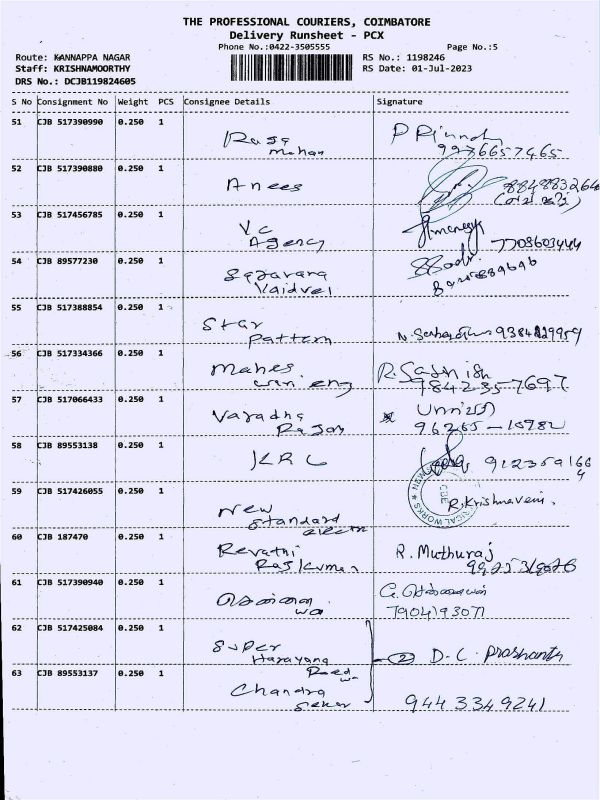 THE PROFESSIONAL COURIERS, COIMBATORE
Delivery Runsheet - PCX
Phone No.:0422-3505555 Page No.:5
Route: KANNAPPA NAGAR RS No.: 1198246
Staff: KRISHNAMOORTHY RS Date: 01-Jul-2023
DRS No.: DCJB119824605
S No Consignment No Weight PCS Consignee Details Signature
51 CJB 517390990 0.250 1
Raja
mohan
9976657465
52 CJB 517390880 0.250 1
Anees
53 CJB 517456785 0.250 1
VC
Agency
7708603444
54 CJB 89577230 0.250 1
Vaidvel
55 CJB 517388854 0.250 1
Star
Pattern
56 CJB 517334366 0.250 1
Mahes
eng
R. Sathish
9842357697
57 CJB 517066433 0.250 1
Varadha
Rajan
58 CJB 89553138 0.250 1
KRC
59 CJB 517426055 0.250 1
New
Standard
R. Krishnaveni.
60 CJB 187470 0.250 1
Revathi
Rajkumar
R. Muthuraj
61 CJB 517390940 0.250 1
7904193071
62 CJB 517425084 0.250 1
Super
Narayana
2 D-C Prashanth
63 CJB 89553137 0.250 1
Chandra
Seker
9443349241